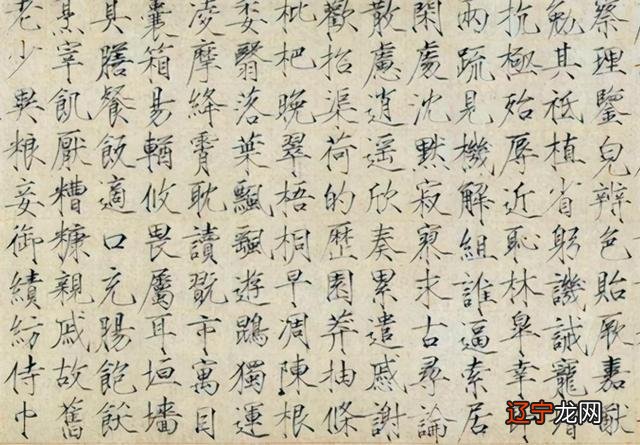 察理鑒皃辨色貽厥嘉猷
勉其祗植省躬譏誡寵
抗極殆辱近恥林皋幸
兩疏見機解組誰逼索居
閑處沈默寂寥求古尋論
散慮逍遙欣奏累遣慼謝
歡招渠荷的歷園莽抽條
枇杷晚翠梧桐早凋陳根
委翳落葉飄颻遊鵾獨運
凌摩絳霄耽讀翫市寓目
囊箱易輶攸畏屬耳垣墻
具膳餐飯適口充腸飽飫
烹宰飢厭糟糠親戚故舊
老少異粮妾御績紡侍巾
辽宁龙网